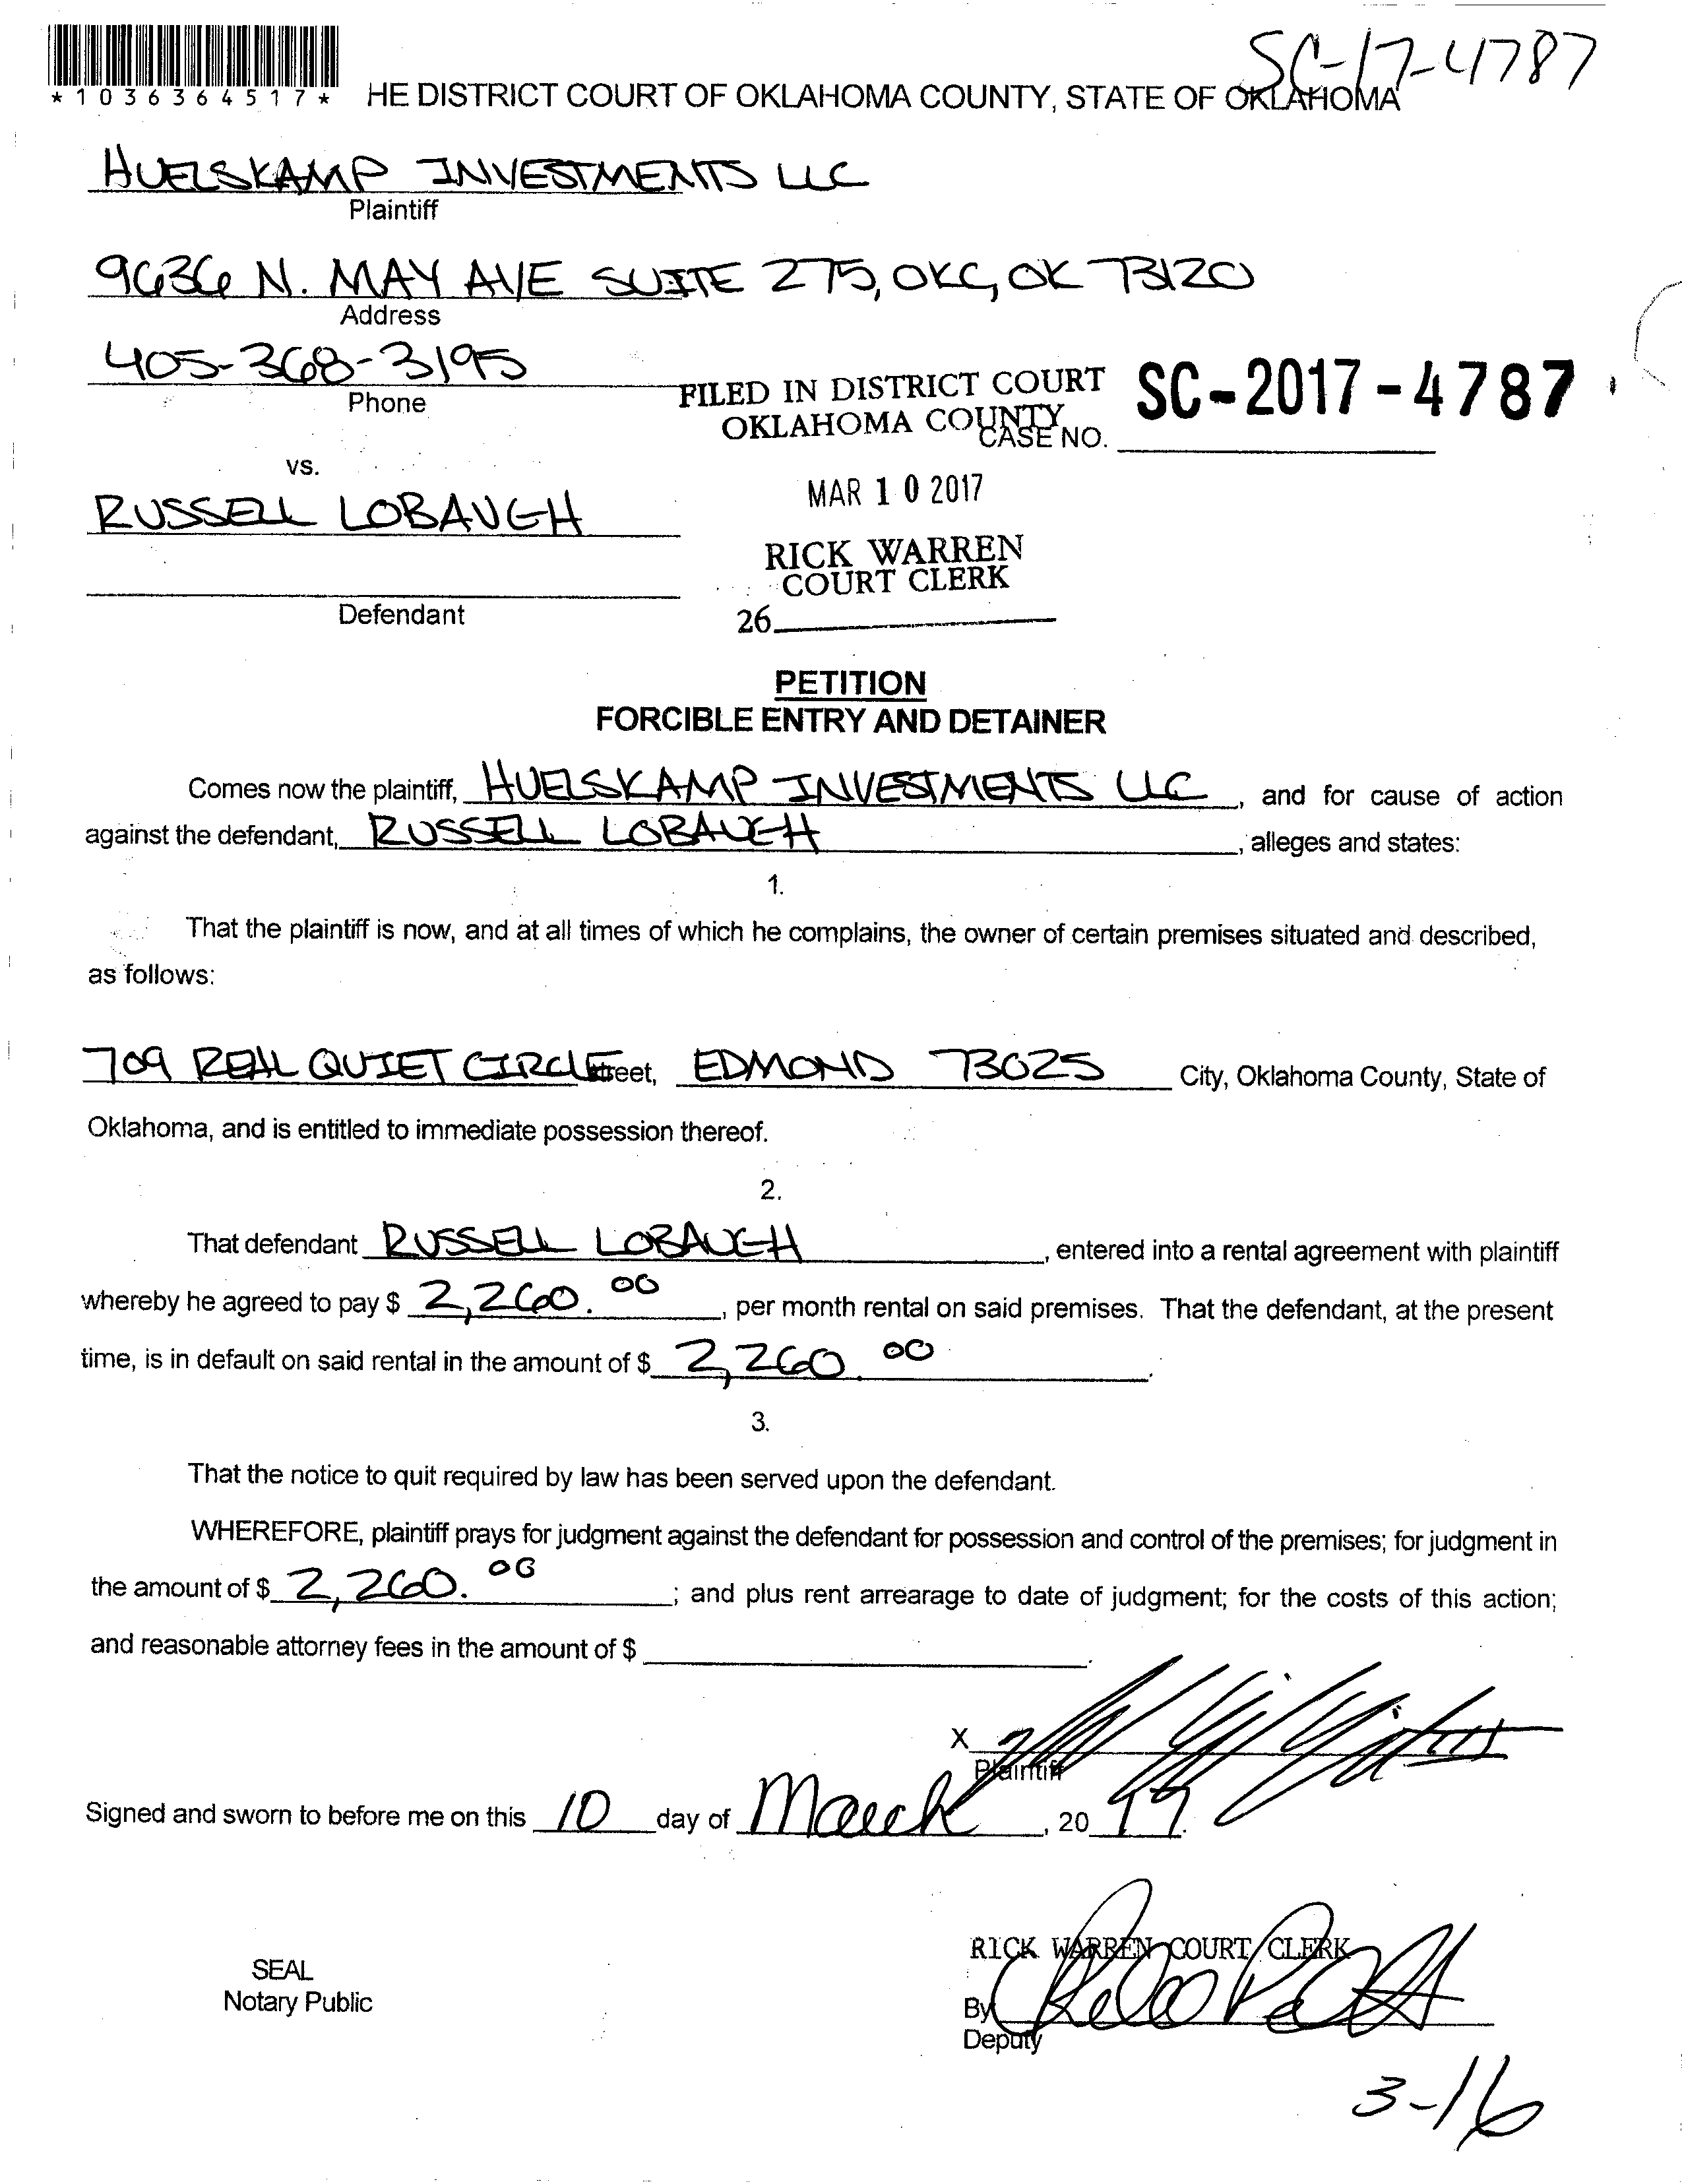 SC-17-4787
*1036364517* HE DISTRICT COURT OF OKLAHOMA COUNTY, STATE OF OKLAHOMA
HUELSKAMP INVESTMENTS LLC
Plaintiff
9636 N. MAY AVE SUITE 275, OKC, OK 73120
Address
405-368-3195
Phone
FILED IN DISTRICT COURT
OKLAHOMA COUNTY
SC-2017-4787
CASE NO.
vs.
MAR 10 2017
RUSSELL LOBAUGH
RICK WARREN
COURT CLERK
Defendant
26
PETITION
FORCIBLE ENTRY AND DETAINER
Comes now the plaintiff, HUELSKAMP INVESTMENTS LLC, and for cause of action
against the defendant, RUSSELL LOBAUGH, alleges and states:
1.
That the plaintiff is now, and at all times of which he complains, the owner of certain premises situated and described,
as follows:
709 REAL QUIET CIRCLE Street, EDMOND 73025 City, Oklahoma County, State of
Oklahoma, and is entitled to immediate possession thereof.
2.
That defendant RUSSELL LOBAUGH, entered into a rental agreement with plaintiff
whereby he agreed to pay $ 2,260.00, per month rental on said premises. That the defendant, at the present
time, is in default on said rental in the amount of $ 2,260.00.
3.
That the notice to quit required by law has been served upon the defendant.
WHEREFORE, plaintiff prays for judgment against the defendant for possession and control of the premises; for judgment in
the amount of $ 2,260.00; and plus rent arrearage to date of judgment; for the costs of this action;
and reasonable attorney fees in the amount of $ .
X
Plaintiff
Signed and sworn to before me on this 10 day of March, 2017.
RICK WARREN COURT CLERK
SEAL
Notary Public
By
Deputy
3-16